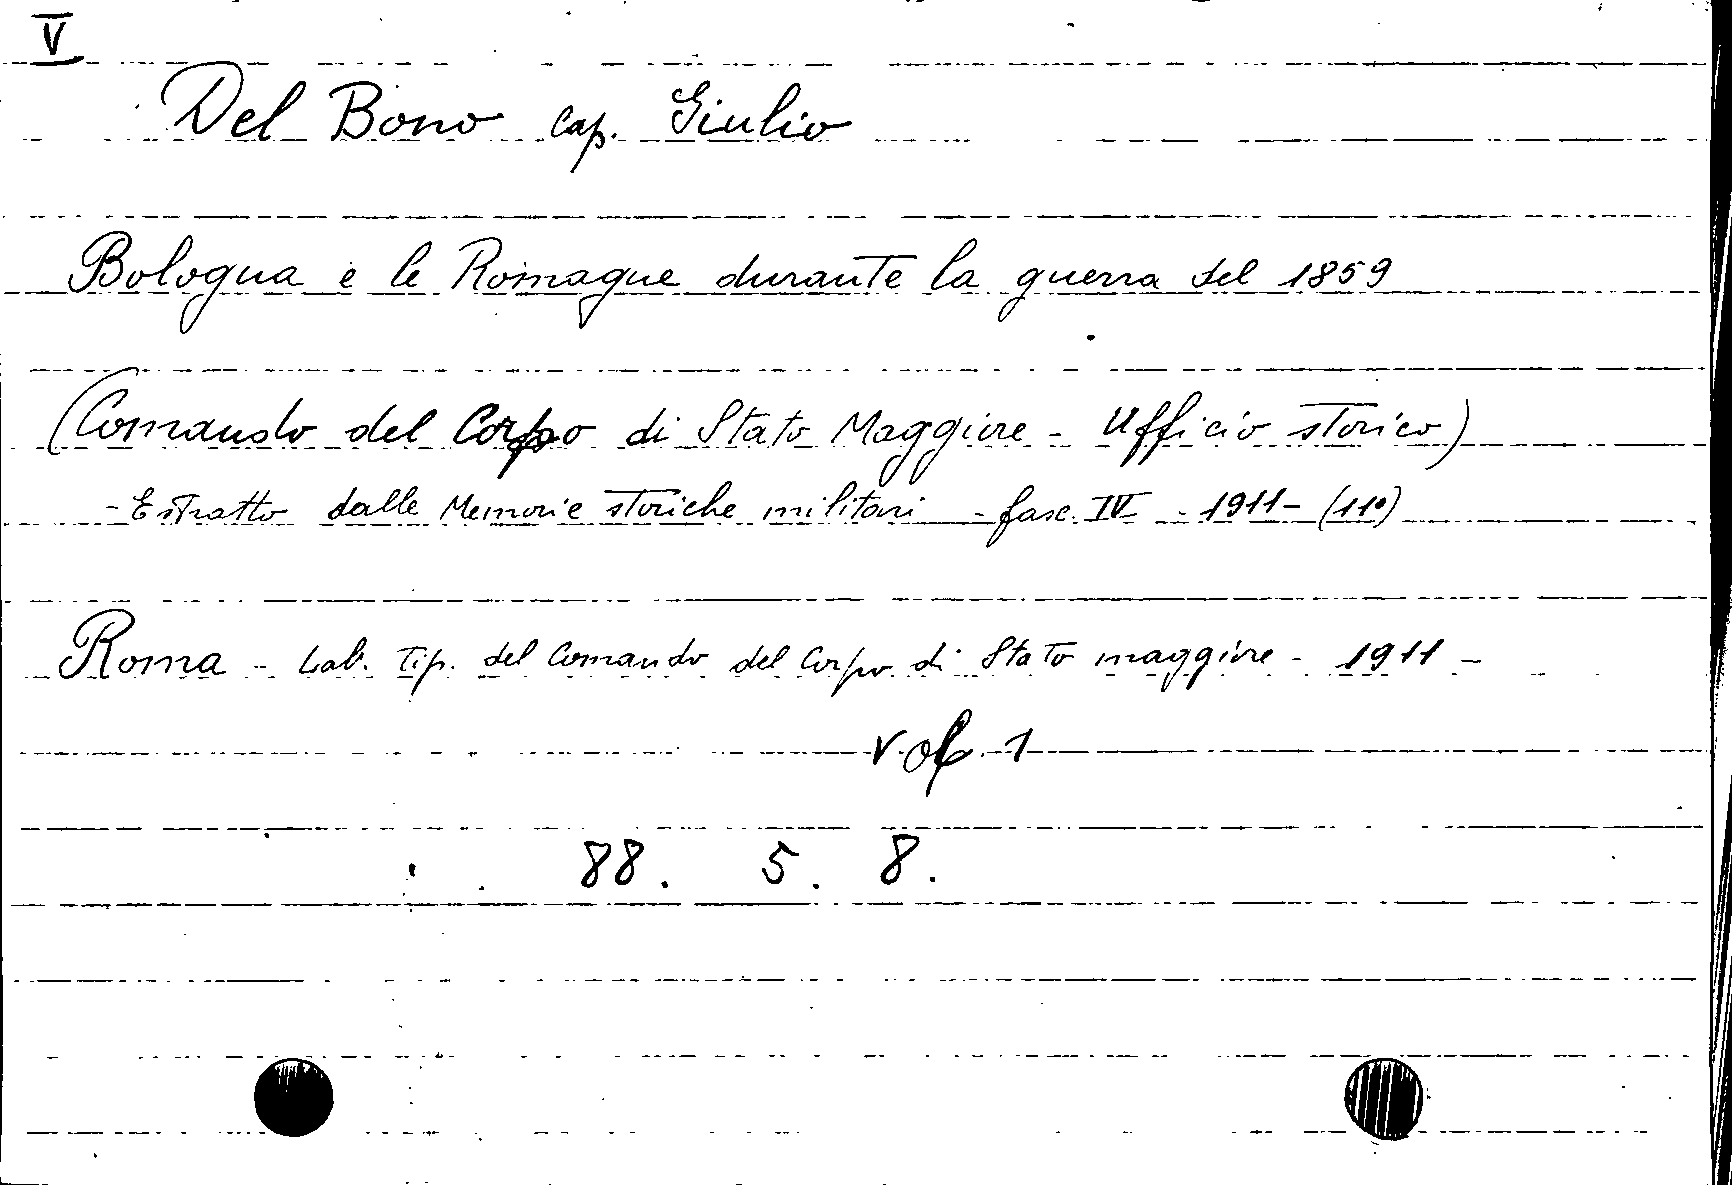 V
Del Bono cap. Giulio
Bologna e le Romagne durante la guerra del 1859
(Comando del Corpo di Stato Maggiore - Ufficio storico)
- Estratto dalle Memorie storiche militari - fasc. IV - 1911 - (11°)
Roma - Lab. Tip. del Comando del Corpo di Stato maggiore - 1911 -
vol. 1
88. 5. 8.